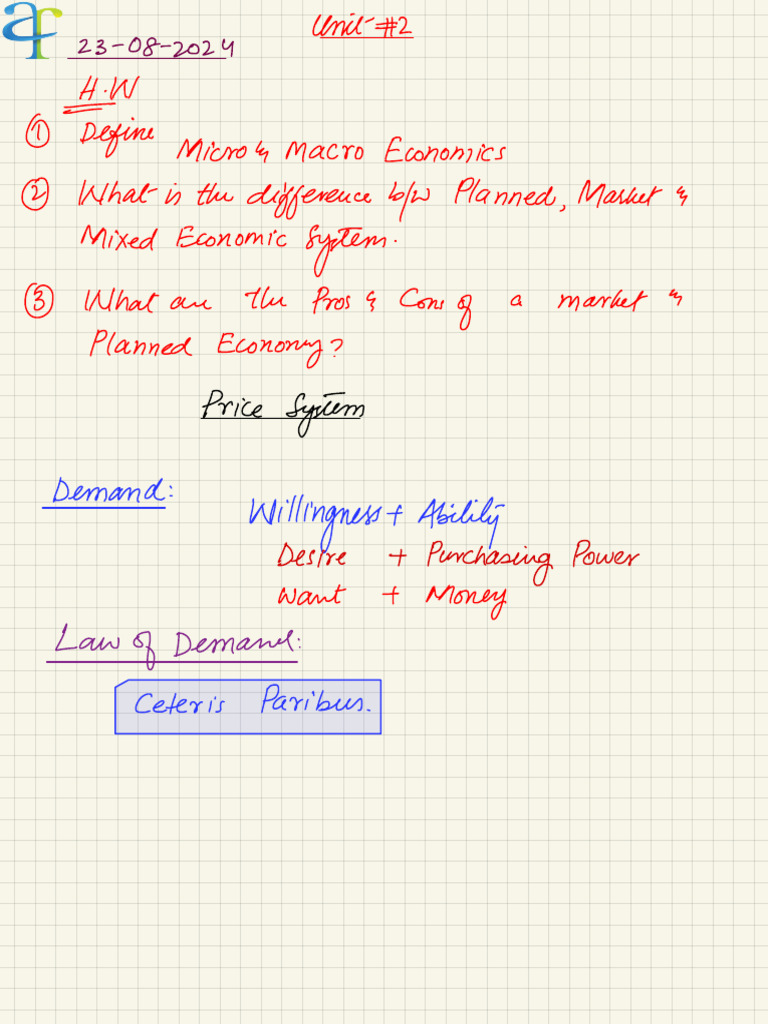 Unit #2
23-08-2024
H.W
① Define Micro & Macro Economics
② What is the difference b/w Planned, Market &
Mixed Economic System.
③ What are the Pros & Cons of a market &
Planned Economy?
Price System
Demand:
Willingness + Ability
Desire + Purchasing Power
Want + Money
Law of Demand:
Ceteris Paribus.